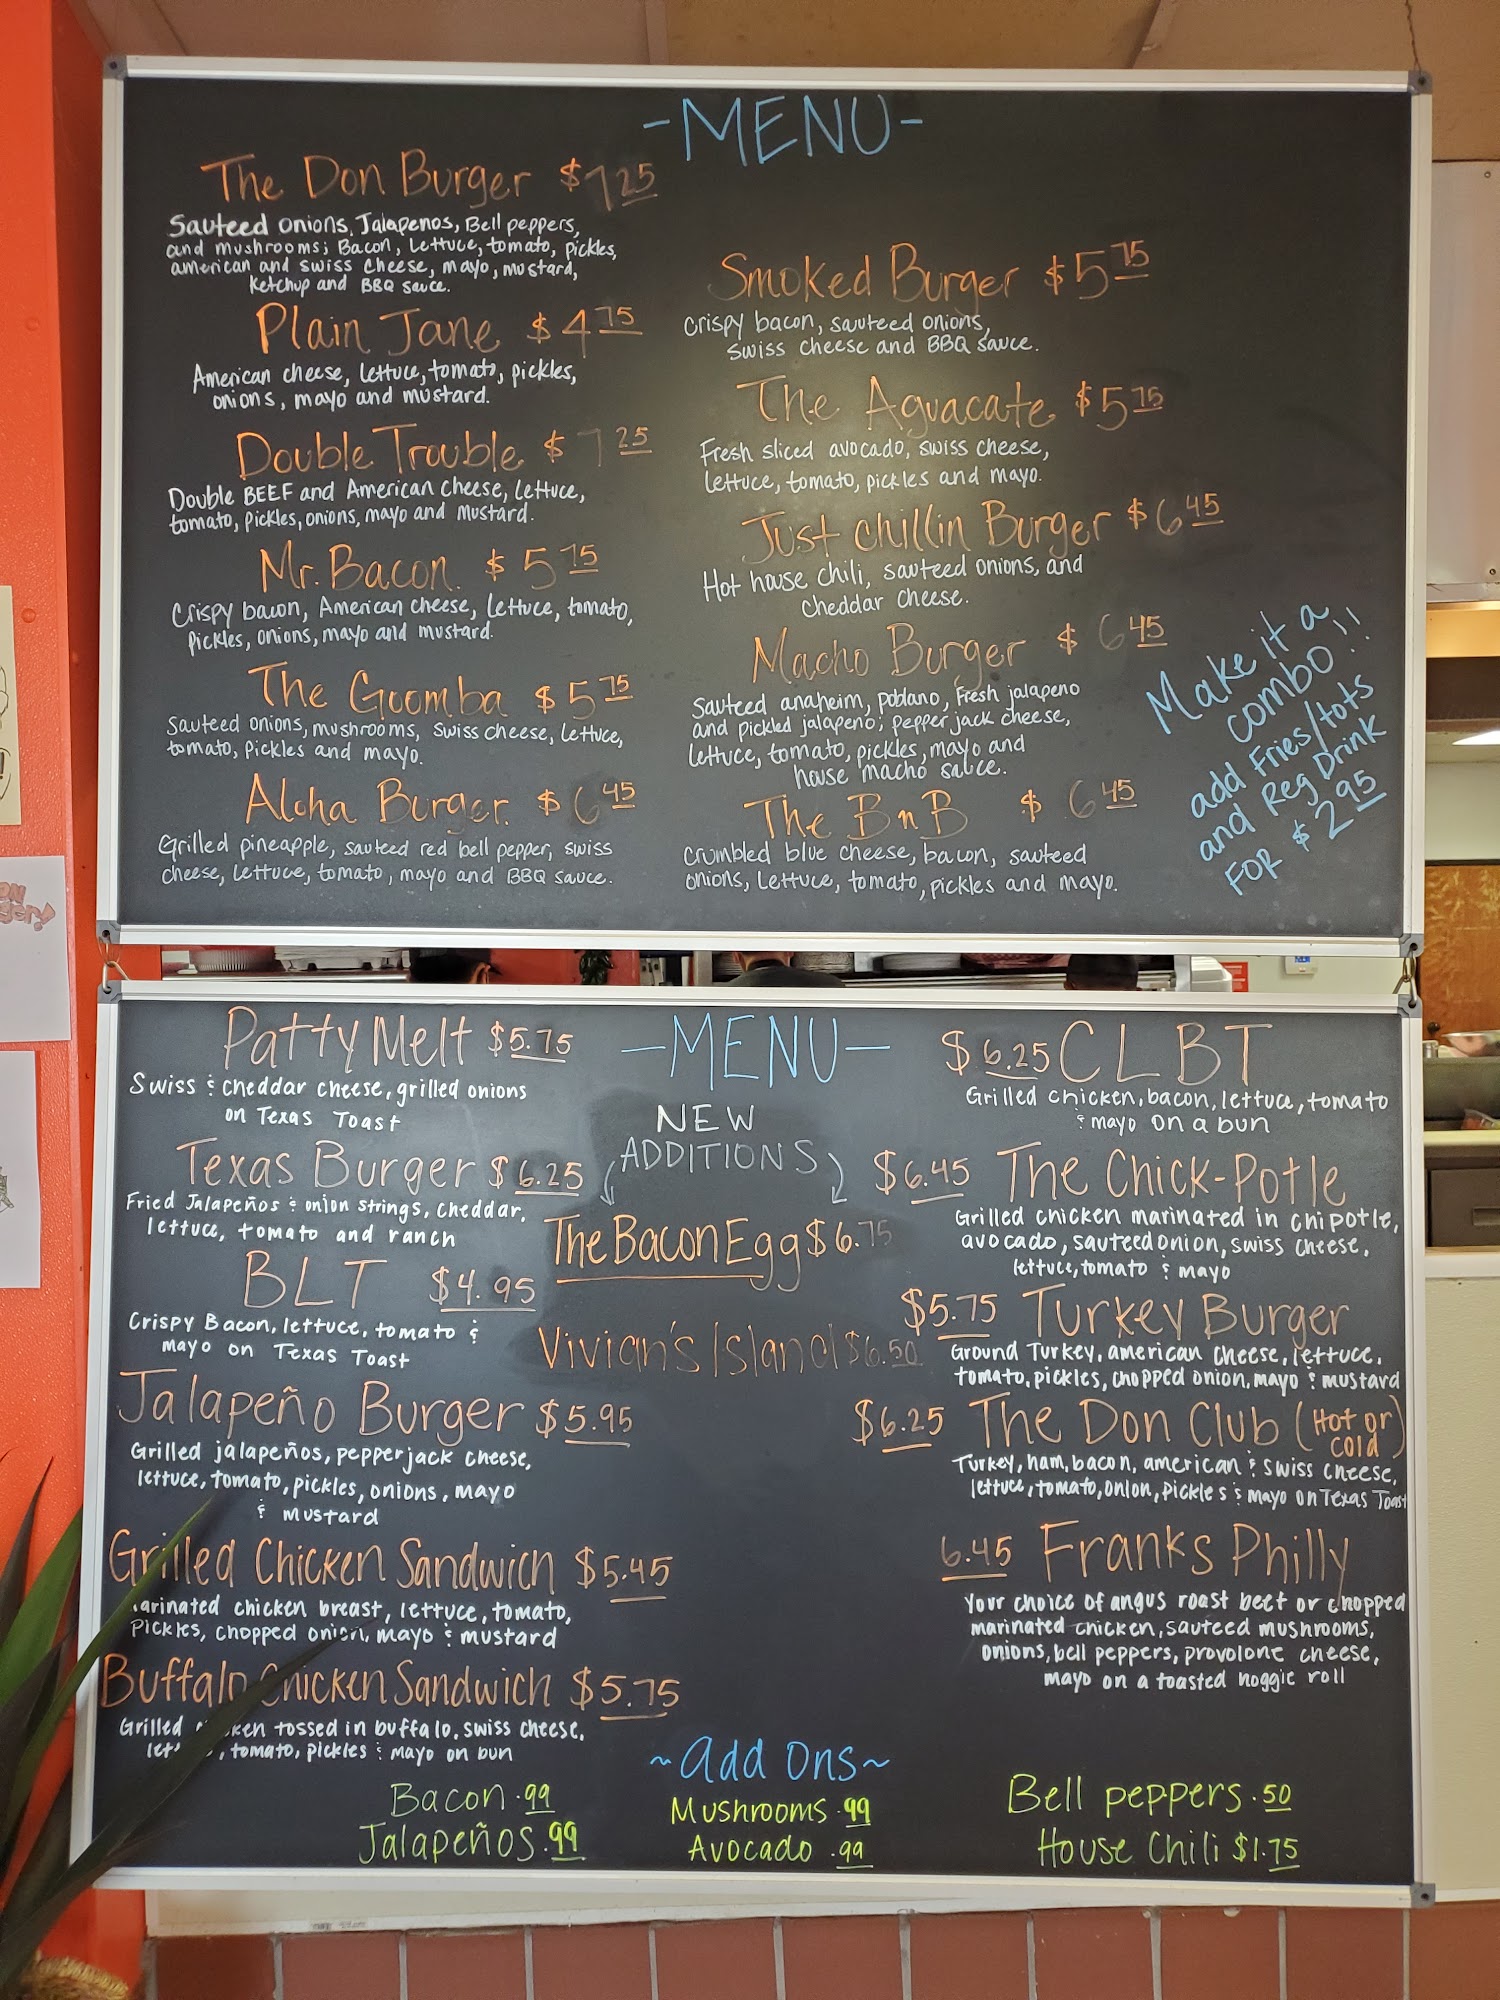 -MENU-
The Don Burger $7.25
Sauteed onions, Jalapenos, Bell peppers,
and mushrooms; Bacon, Lettuce, tomato, pickles,
american and swiss cheese, mayo, mustard,
ketchup and BBQ sauce.
Plain Jane $4.75
American cheese, lettuce, tomato, pickles,
onions, mayo and mustard.
Double Trouble $7.25
Double BEEF and American cheese, Lettuce,
tomato, pickles, onions, mayo and mustard.
Mr. Bacon $5.75
Crispy bacon, American cheese, lettuce, tomato,
Pickles, onions, mayo and mustard.
The Goomba $5.75
Sauteed onions, mushrooms, swiss cheese, Lettuce,
tomato, pickles and mayo.
Aloha Burger $6.45
Grilled pineapple, sauteed red bell pepper, swiss
cheese, lettuce, tomato, mayo and BBQ sauce.
Smoked Burger $5.75
Crispy bacon, sauteed onions,
swiss cheese and BBQ sauce.
The Aguacate $5.75
Fresh sliced avocado, swiss cheese,
lettuce, tomato, pickles and mayo.
Just chillin Burger $6.45
Hot house chili, sauteed onions, and
cheddar cheese.
Macho Burger $6.45
Sauteed anaheim, poblano, fresh jalapeno
and pickled jalapeno; pepper jack cheese,
lettuce, tomato, pickles, mayo and
house macho sauce.
The BnB $6.45
Crumbled blue cheese, bacon, sauteed
onions, Lettuce, tomato, pickles and mayo.
Make it a
combo!!
add Fries/tots
and Reg Drink
FOR $2.95
-MENU-
NEW
ADDITIONS
The Bacon Egg $6.75
Vivian's Island $6.50
Patty Melt $5.75
Swiss & cheddar cheese, grilled onions
on Texas Toast
Texas Burger $6.25
Fried Jalapeños & onion strings, cheddar,
lettuce, tomato and ranch
BLT $4.95
Crispy Bacon, lettuce, tomato &
mayo on Texas Toast
Jalapeño Burger $5.95
Grilled jalapeños, pepperjack cheese,
lettuce, tomato, pickles, onions, mayo
& mustard
Grilled Chicken Sandwich $5.45
marinated chicken breast, lettuce, tomato,
Pickles, chopped onion, mayo & mustard
Buffalo Chicken Sandwich $5.75
Grilled chicken tossed in buffalo, swiss cheese,
lettuce, tomato, pickles & mayo on bun
$6.25 CLBT
Grilled chicken, bacon, lettuce, tomato
& mayo on a bun
$6.45 The Chick-Potle
Grilled chicken marinated in chipotle,
avocado, sauteed onion, swiss cheese,
lettuce, tomato & mayo
$5.75 Turkey Burger
Ground Turkey, american cheese, lettuce,
tomato, pickles, chopped onion, mayo & mustard
$6.25 The Don Club (Hot or
cold)
Turkey, ham, bacon, american & swiss cheese,
lettuce, tomato, onion, pickles & mayo on Texas Toast
6.45 Franks Philly
Your choice of angus roast beef or chopped
marinated chicken, sauteed mushrooms,
onions, bell peppers, provolone cheese,
mayo on a toasted hoggie roll
~Add Ons~
Bacon .99
Jalapeños .99
Mushrooms .99
Avocado .99
Bell peppers .50
House Chili $1.75